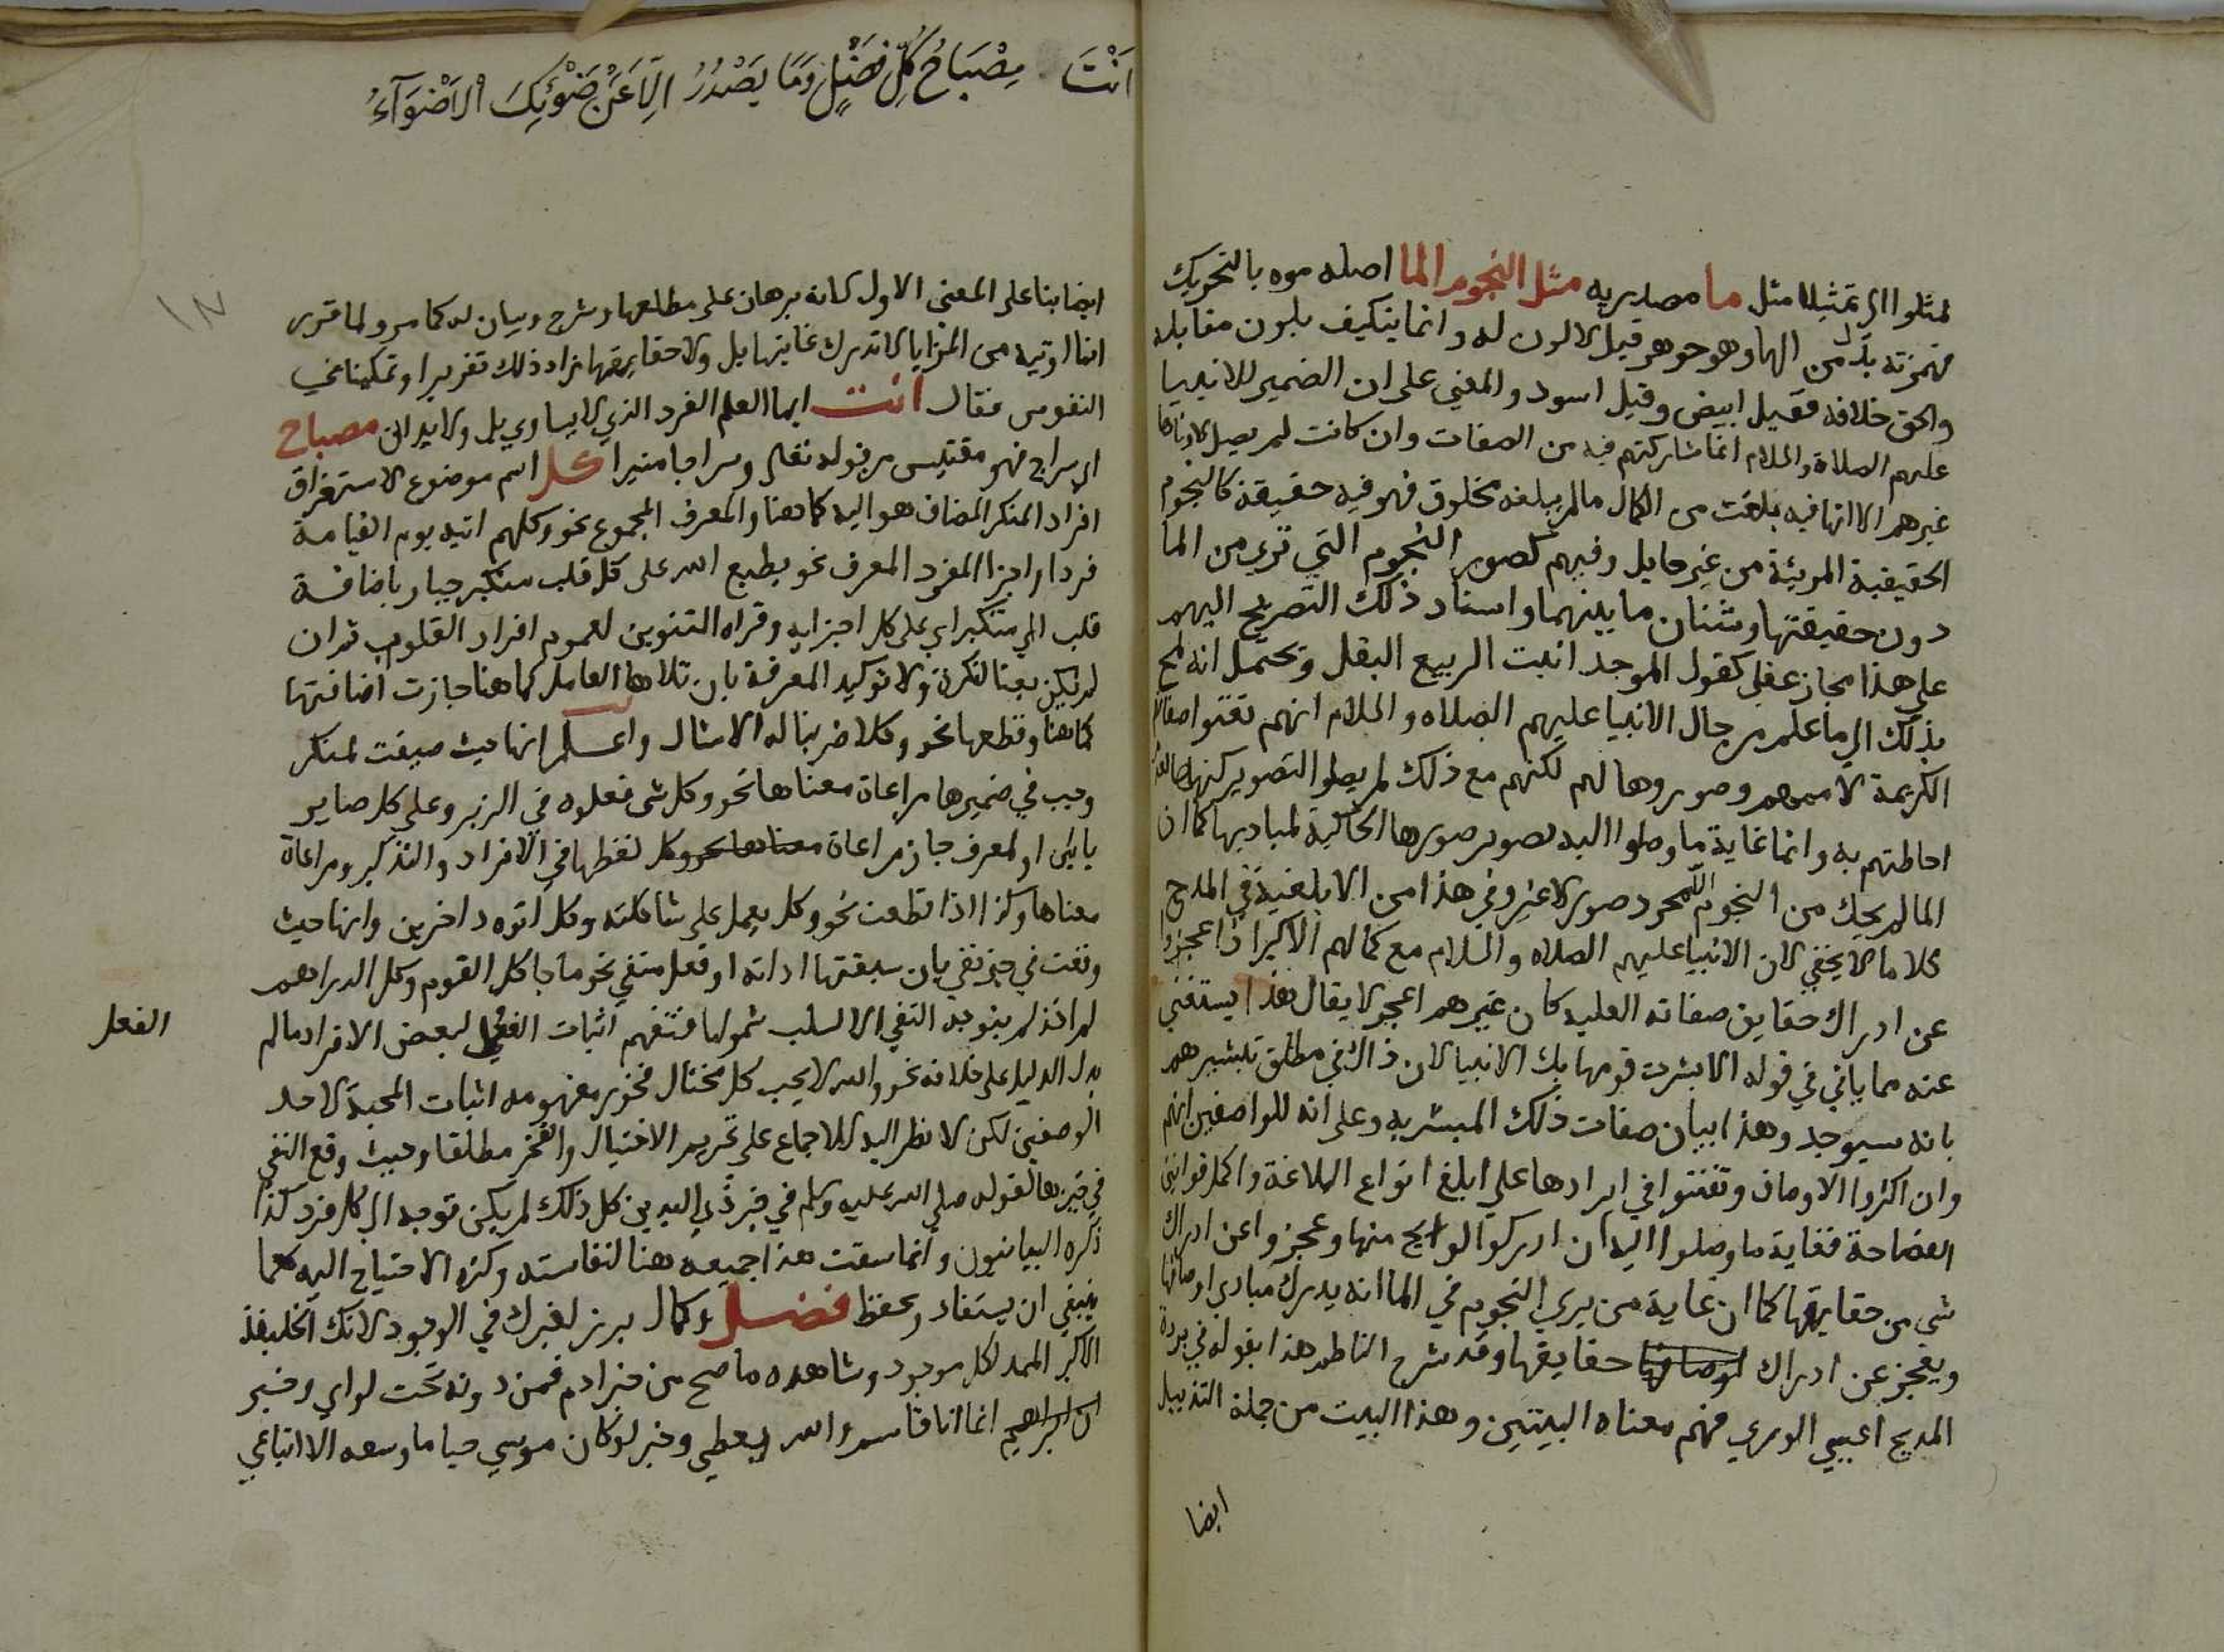 لمثلوا اي تمثيلا مثل ما مصدريه مثل النجوم الما اصله موه بالتحريك
همزته بدل من الها وهو جوهر قيل لا لون له وانما يتكيف بلون مقابله
والحق خلافه فقيل ابيض وقيل اسود والمعني علي ان الضمير للانبيا
عليهم الصلاة والسلام انما شاركتهم فيه من الصفات وان كانت لم يصل لادناها
غيرهم الا انها فيه بلغت من الكمال مالم يبلغه مخلوق فهو فيه حقيقة كالنجوم
الحقيقية المريئة من غير حايل وفيهم كصور النجوم التي تري من الما
دون حقيقتها وشتان ما بينهما واسناد ذلك التصريح اليهم
علي هذا مجاز عقلي كقول الموحد انبت الربيع البقل ويحتمل انه لمح
بذلك الي ما علم من حال الانبيا عليهم الصلاه والسلام انهم نعتوا صفاته
الكريمة لاممهم وصوروها لهم لكنهم مع ذلك لم يصلوا التصوير كنهها لعدم
احاطتهم به وانما غاية ما وصلوا اليه تصوير صورها الحاكية لمباديها كما ان
الما لم يحك من النجوم الا مجرد صور لا غير وفي هذا من الابلغية في المدح
كلاما لا يخفي لان الانبيا عليهم الصلاه والسلام مع كمالهم الاكبر اذا عجزوا
عن ادراك حقايق صفاته العليه كان غيرهم اعجز لا يقال هذا يستغني
عنه مما ياتي في قوله الا بشرت قومها بك الانبيا لان ذاك في مطلق تبشيرهم
بانه سيوجد وهذا بيان صفات ذلك المبشر به وعلي انه للواصفين انهم
وان اكثروا الاوصاف وتفننوا في ايرادها علي ابلغ انواع البلاغة واكمل قوانين
الفصاحة فغاية ما وصلوا اليه ان ادركوا لوايح منها وعجزوا عن ادراك
شي من حقايقها كما ان غاية من يري النجوم في الما انه يدرك مبادي اوصافها
ويعجز عن ادراك اوصافها حقايقها وقد شرح الناظم هذا بقوله في بردة
المديح اعيي الوري فهم معناه البيتين وهذا البيت من جملة التذييل
ايضا
اَنْتَ مِصْبَاحُ كُلِّ فَضْلٍ وَمَا يَصْدُرُ اِلَّا عَنْ ضَوْئِكَ الْاَضْوَآءُ
ايضا بنا علي المعني الاول كانه برهان علي مطلعها وشرح وبيان له كما مر ولما قرر
انما اوتيه من المزايا لا تدرك غايتها بل ولا حقايقها زاد ذلك تقريرا وتمكينا في
النفوس فقال انت ايها العلم الفرد الذي لا يساوي بل ولا يداني مصباح
اي سراج فهو مقتبس من قوله تعالي وسراجا منيرا كل اسم موضوع لاستغراق
افراد المنكر المضاف هو اليه كما هنا والمعرف المجموع نحو وكلهم اتيه يوم القيامة
فردا واجزا المفرد المعرف نحو يطبع الله علي كل قلب متكبر جبار باضافة
قلب الي متكبر اي علي كل اجزايه وقراه التنوين لعموم افراد القلوب ثم ان
لم تكن نعتا لنكرة ولا توكيد المعرفة بان تلاها العامل كما هنا جازت اضافتها
كما هنا وقطعها نحو وكلا ضربنا له الامثال واعلم انها حيث صيغت لمنكر
وجب في ضميرها مراعاة معناها نحو وكل شي فعلوه في الزبر وعلي كل ضامر
ياتين او لمعرف جاز مراعاة معناها نحو وكل لفظها في الافراد والتذكير ومراعاة
معناها وكذا اذا قطعت نحو وكل يعمل علي شاكلته وكل اتوه داخرين وانها حيث
وقعت في حيز نفي بان سبقتها اداته او فعل منفي نحو ما جا كل القوم وكل الدراهم
لم اخذ لم يتوجه النفي الا لسلب شمولها فتفهم اثبات الفعل لبعض الافراد مالم
الفعل
يدل الدليل علي خلافه نحو والله لا يحب كل مختال فخور مفهومه اثبات المحبة لاحد
الوصفين لكن لا نظر اليه للاجماع علي تحريم الاختيال والفخر مطلقا وحيث وقع النفي
في حيزها كقوله صلي الله عليه وسلم في خبر ذي اليدين كل ذلك لم يكن توجه الي كل فرد كذا
ذكره البيانيون وانما سقت هذا جميعه هنا لنفاسته وكثرة الاحتياج اليه كما
ينبغي ان يستفاد ويحفظ فضل وكمال برز لغيرك في الوجود لانك الخليفة
الاكبر الممد لكل موجود وشاهده ما صح من خبر ادم فمن دونه تحت لواي وخبر
ان ابراهيم انما انا قاسم والله يعطي وخبر لو كان موسي حيا ما وسعه الا اتباعي